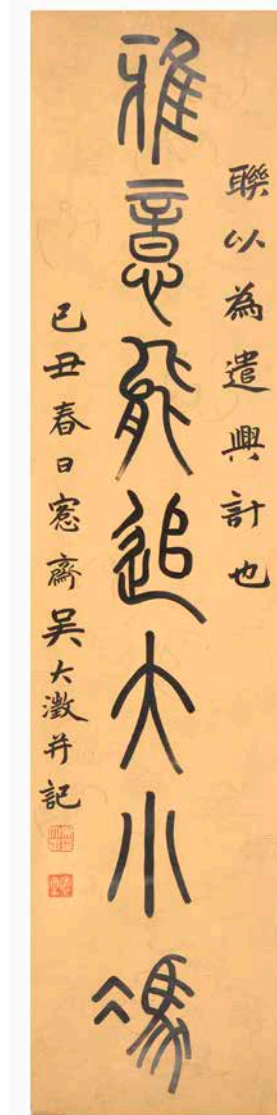 聯以為遣興計也
雅意能追大小馮
己丑春日愙齋吳大澂并記